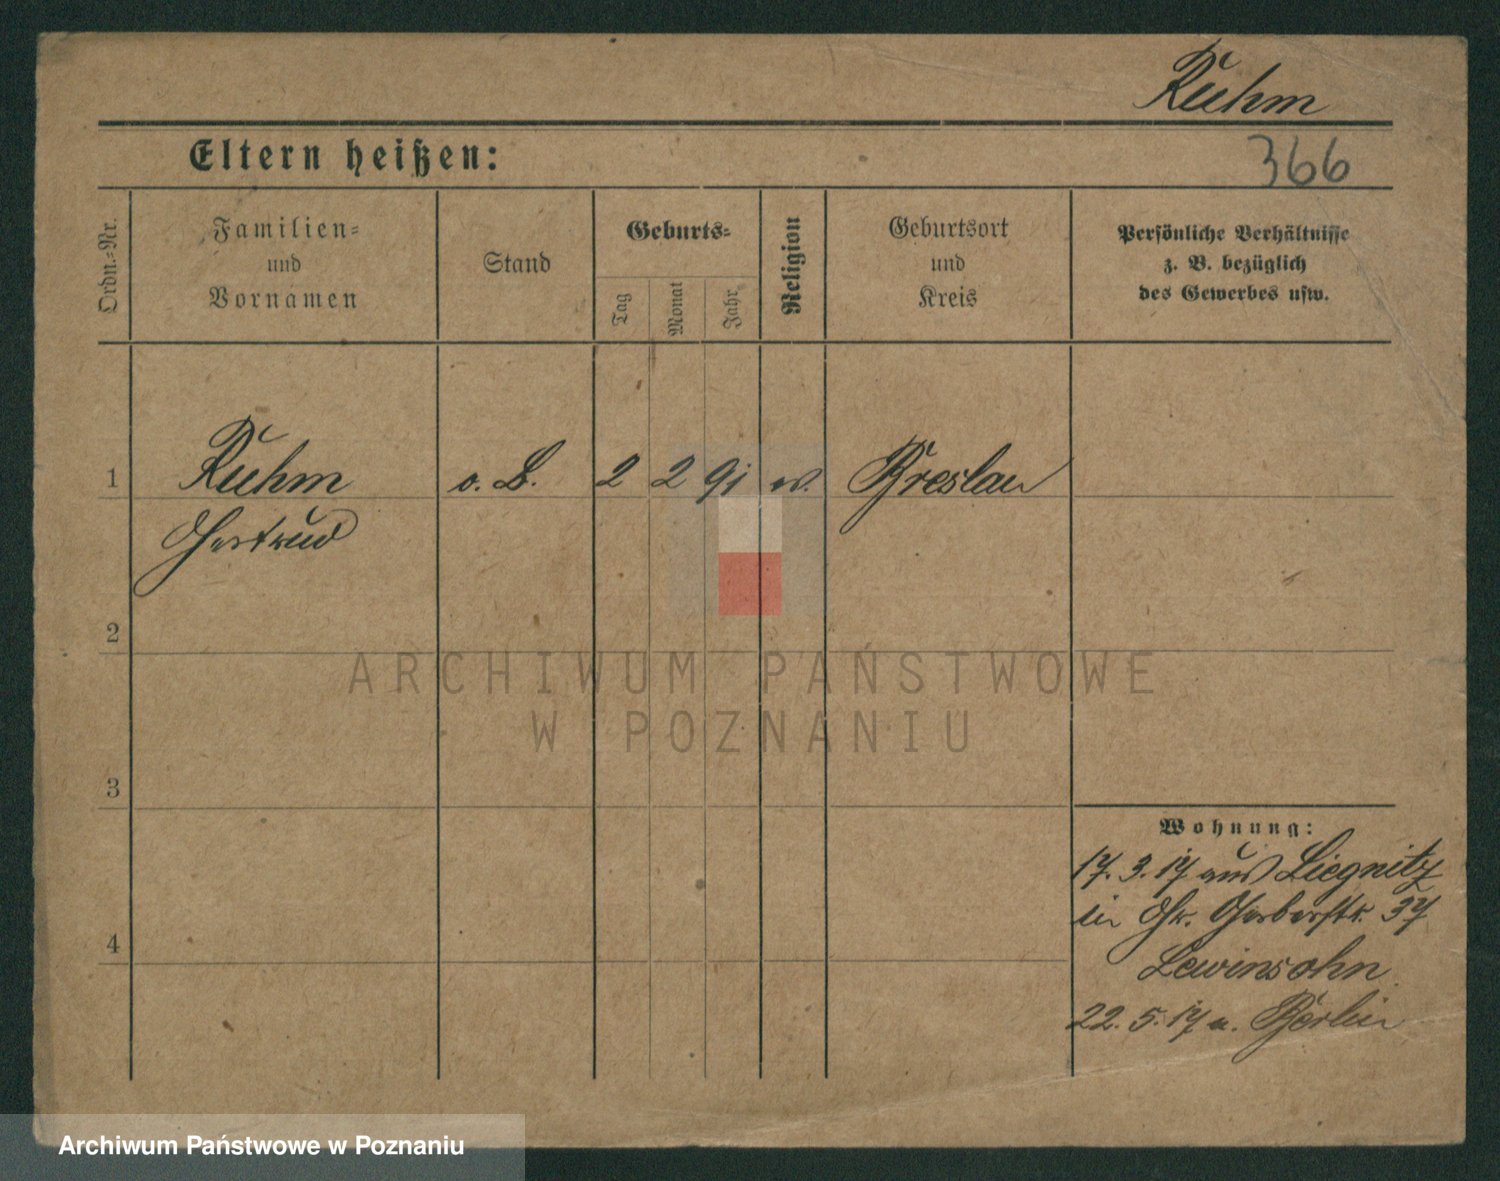 Ruhm
Eltern heißen:
366
Ordn.-Nr.
Familien-
und
Vornamen
Stand
Geburts-
Tag
Monat
Jahr
Religion
Geburtsort
und
Kreis
Persönliche Verhältnisse
z. B. bezüglich
des Gewerbes usw.
1
Ruhm
o. B.
2
2
91
ev.
Breslau
Gertrud
2
3
4
Wohnung:
17. 3. 17 aus Liegnitz
in Gr. Gerberstr. 37
Lewinsohn
22. 5. 17 n. Berlin
ARCHIWUM PAŃSTWOWE
W POZNANIU
Archiwum Państwowe w Poznaniu